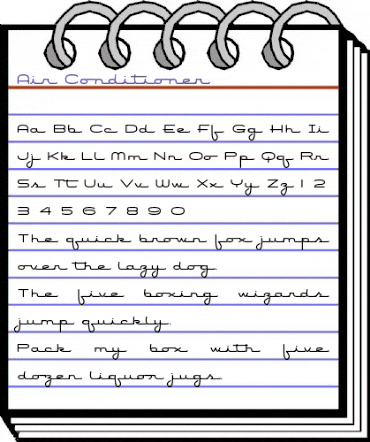 Air Conditioner
Aa Bb Cc Dd Ee Ff Gg Hh Ii
Jj Kk Ll Mm Nn Oo Pp Qq Rr
Ss Tt Uu Vv Ww Xx Yy Zz 1 2
3 4 5 6 7 8 9 0
The quick brown fox jumps
over the lazy dog.
The five boxing wizards
jump quickly.
Pack my box with five
dozen liquor jugs.